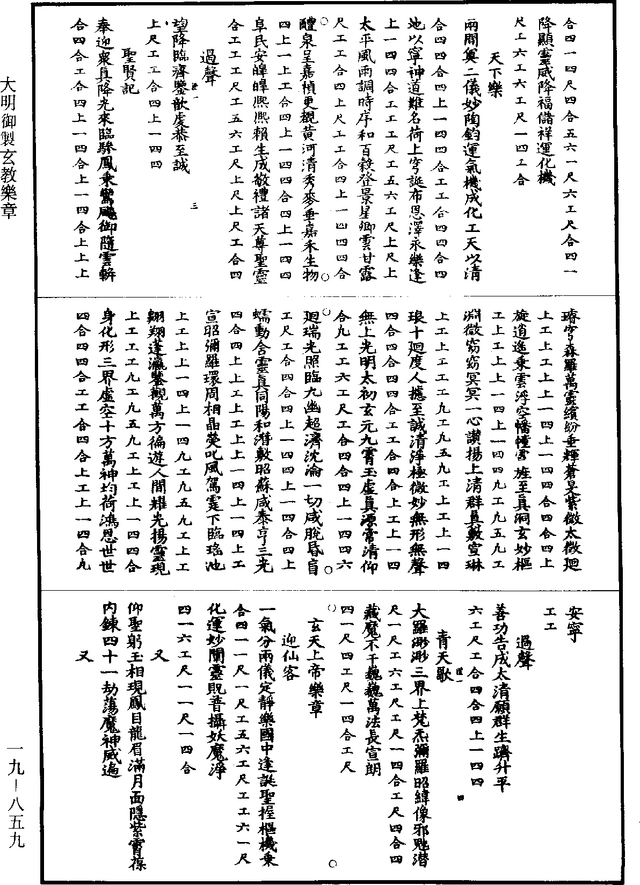 合四一四尺四合五六一尺六工尺合四一
降顯靈威降福儲祥運化機
尺六工六工尺一四工合
天下樂
兩間奠二儀妙陶鈞運氣機成化工天以清
合四四合四上一四四合合工工合四四合四
地以寧神道難名荷上穹誕布恩澤永樂逢
上一四四合工工尺工五六工尺上尺上
太平風雨調時序和百穀登景星卿雲甘露
尺工工合四上尺工工合四上一四四四合
醴泉呈嘉禎更覩黃河清秀麥垂嘉禾生物
四上一上工合四上一四四合四合四上一四四
阜民安皥皥熙熙賴生成敬禮諸天尊聖靈
合工工工尺工五六工尺上尺上尺工合四
過聲
望降臨濟鑒歆虔恭至誠
上尺工工合四上一四四
三
聖賢記
奉迎衆真降光來臨驂鳳乘鸞飈御隨雲軿
合四合工合四上一四合上一四四合上上上
大明御製玄教樂章
璿穹森羅萬靈繽紛垂輝蒼旻紫微太微廻
上工上工上上一四上一四四合四合四上
旋逍遙乘雲浮空幡幢霓旌至真洞玄妙樞
工上工上上一四上一四四九工九五九工
淵微窈窈冥冥一心讚揚上清群真敷宣琳
上工上工工工九工九五九工上工上一四
琅十廻度人攄至誠清淨極微妙無形無聲
四合四合四四合工工合四合四上工上一四
無上光明太初玄元九霄玉虛真源常清仰
合九工六工尺工四合四合四上一四四六
廻瑞光照臨九幽超濟沈淪一切咸脫昏盲
工尺工合四合四上一四上一四四合四上
蠕動含靈真同陽和潛敷昭蘇咸泰亨三光
四合四上上工上工上上一四上一四上工
宣昭彌羅環周相晶熒叱風駕霆下臨瑤池
上工上上一四上一四九工九五九工上工
翱翔蓬瀛鑒觀萬方徧遊人間耀光揚靈現
上工工工九工九五九工上工上一四四合
身化形三界虛空十方萬神均荷鴻恩世世
四合四四合工工合四合四上工上一四合九
安寧
工工
過聲
善功告成太清願群生躋升平
六工尺工合四合四上一四四
青天歌
大羅渺渺三界上梵炁彌羅昭緯像邪魁潛
尺一尺一工六工尺工尺一四合工尺四合四
藏魔不干巍巍萬法長宣朗
四一尺四工尺一四合工尺
四
玄天上帝樂章
迎仙客
一氣分兩儀定靜樂國中逢誕聖握樞機乘
合四四一尺一尺工五六工尺工工六一尺
化運妙闡靈貺普攝妖魔淨
四一六工尺一一尺一四合
又
仰聖躬王相現鳳目龍眉滿月面隱紫霄葆
內鍊四十一劫蕩魔神威遍
又
一九—八五九